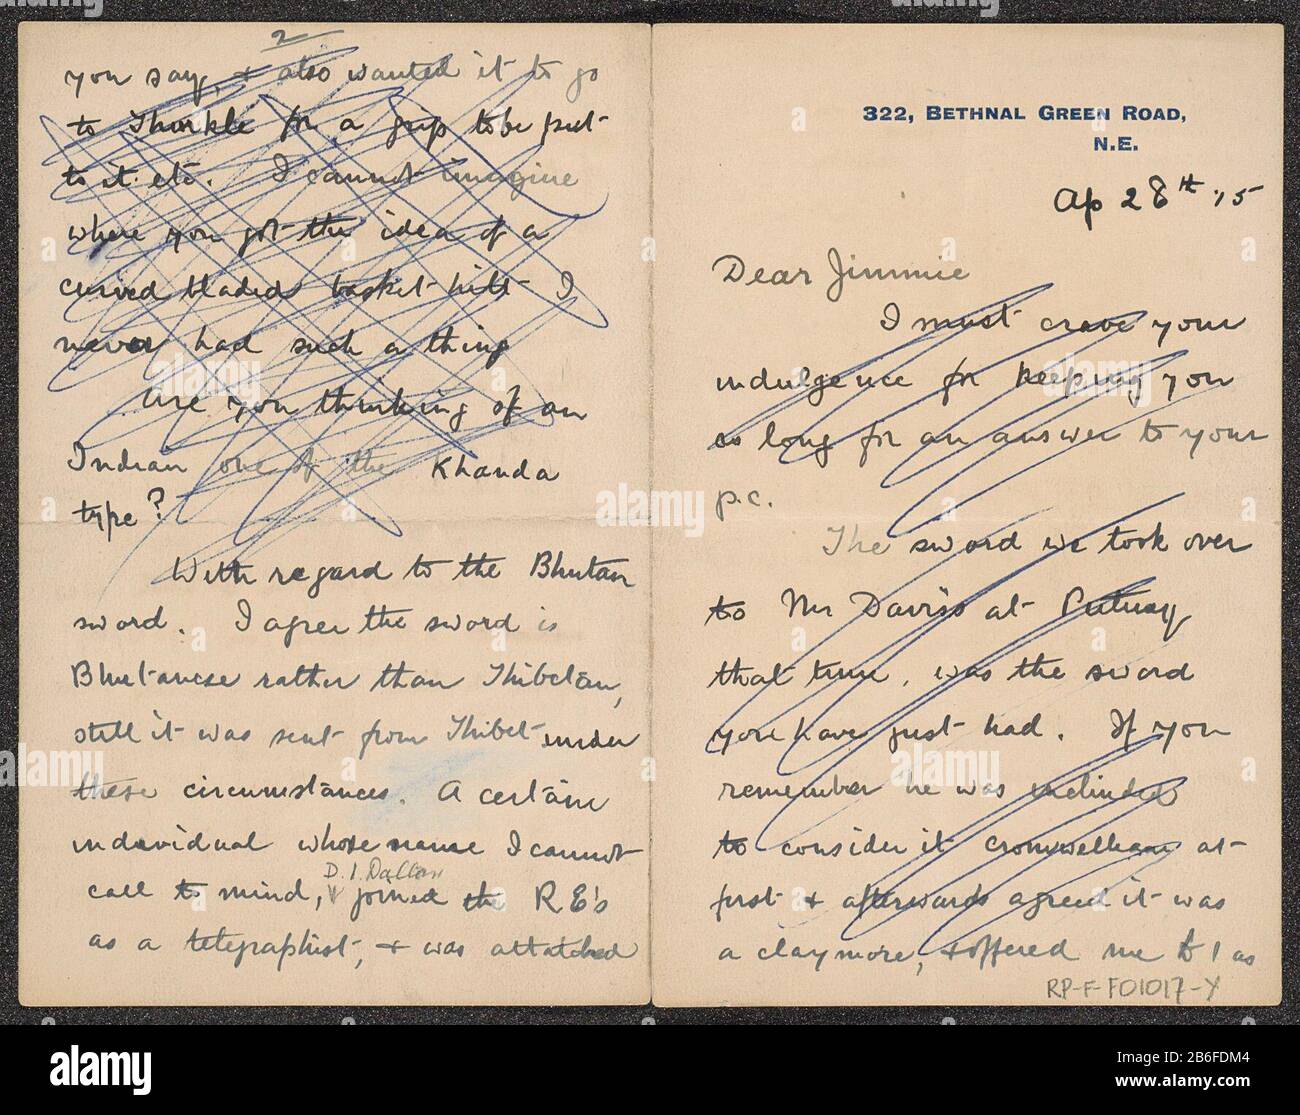 322, BETHNAL GREEN ROAD,
N.E.
Ap 28th '15
Dear Jimmie
I must crave your
indulgence for keeping you
so long for an answer to your
p.c.
The sword we took over
to Mr Daviss at Putney
that time, was the sword
you have just had. If you
remember he was inclinded
to consider it Cromwellian at
first & afterwards agreed it was
a claymore, & offered me £1 as
RP-F-F01017-Y
2
you say, & also wanted it to go
to Thurkle for a grip to be put
to it etc. I cannot imagine
where you got the idea of a
curved bladed basket hilt I
never had such a thing
Are you thinking of an
Indian one of the Khanda
type?
With regard to the Bhutan
sword. I agree the sword is
Bhutanese rather than Thibetan,
still it was sent from Thibet under
these circumstances. A certain
individual whose name I cannot
D.I. Dallan
call to mind, joined the R E's
as a telegraphist, & was attatched
alamy
Image ID: 2B6FDM4
www.alamy.com